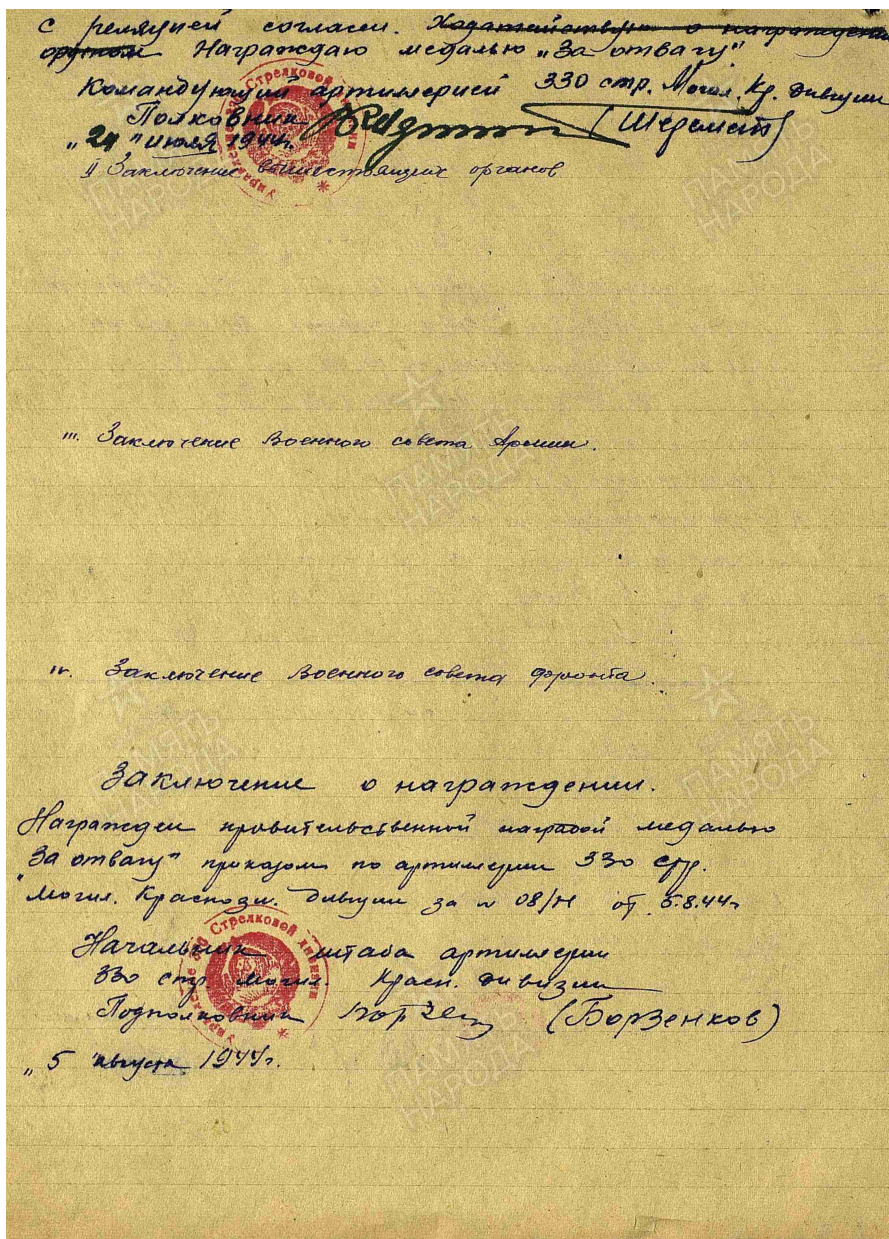 с реляцией согласен. Ходатайствую о награждении
орденом Награждаю медалью „За отвагу"
Командующий артиллерией 330 стр. Могил. Кр. дивизии
Полковник
„24" июля 1944г.
II Заключение вышестоящих органов
III. Заключение Военного совета Армии.
IV. Заключение Военного совета фронта.
Заключение о награждении.
Награжден правительственной наградой медалью
„За отвагу" приказом по артиллерии 330 стр.
Могил. Краснозн. дивизии за № 08/н от 5.8.44г
Начальник штаба артиллерии
330 стр. Могил. Красн. дивизии
Подполковник (Борзенков)
„5 августа 1944г.
ПАМЯТЬ
НАРОДА